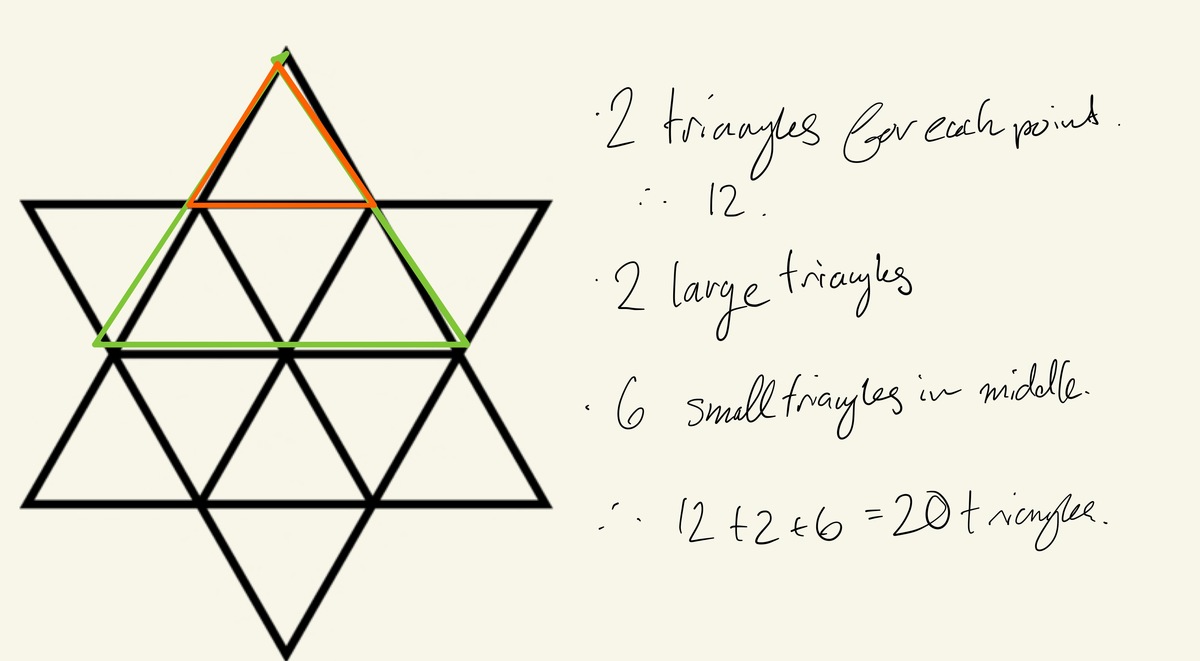 · 2 triangles for each point.
∴ 12.
· 2 large triangles
· 6 small triangles in middle.
∴ 12 + 2 + 6 = 20 triangles.